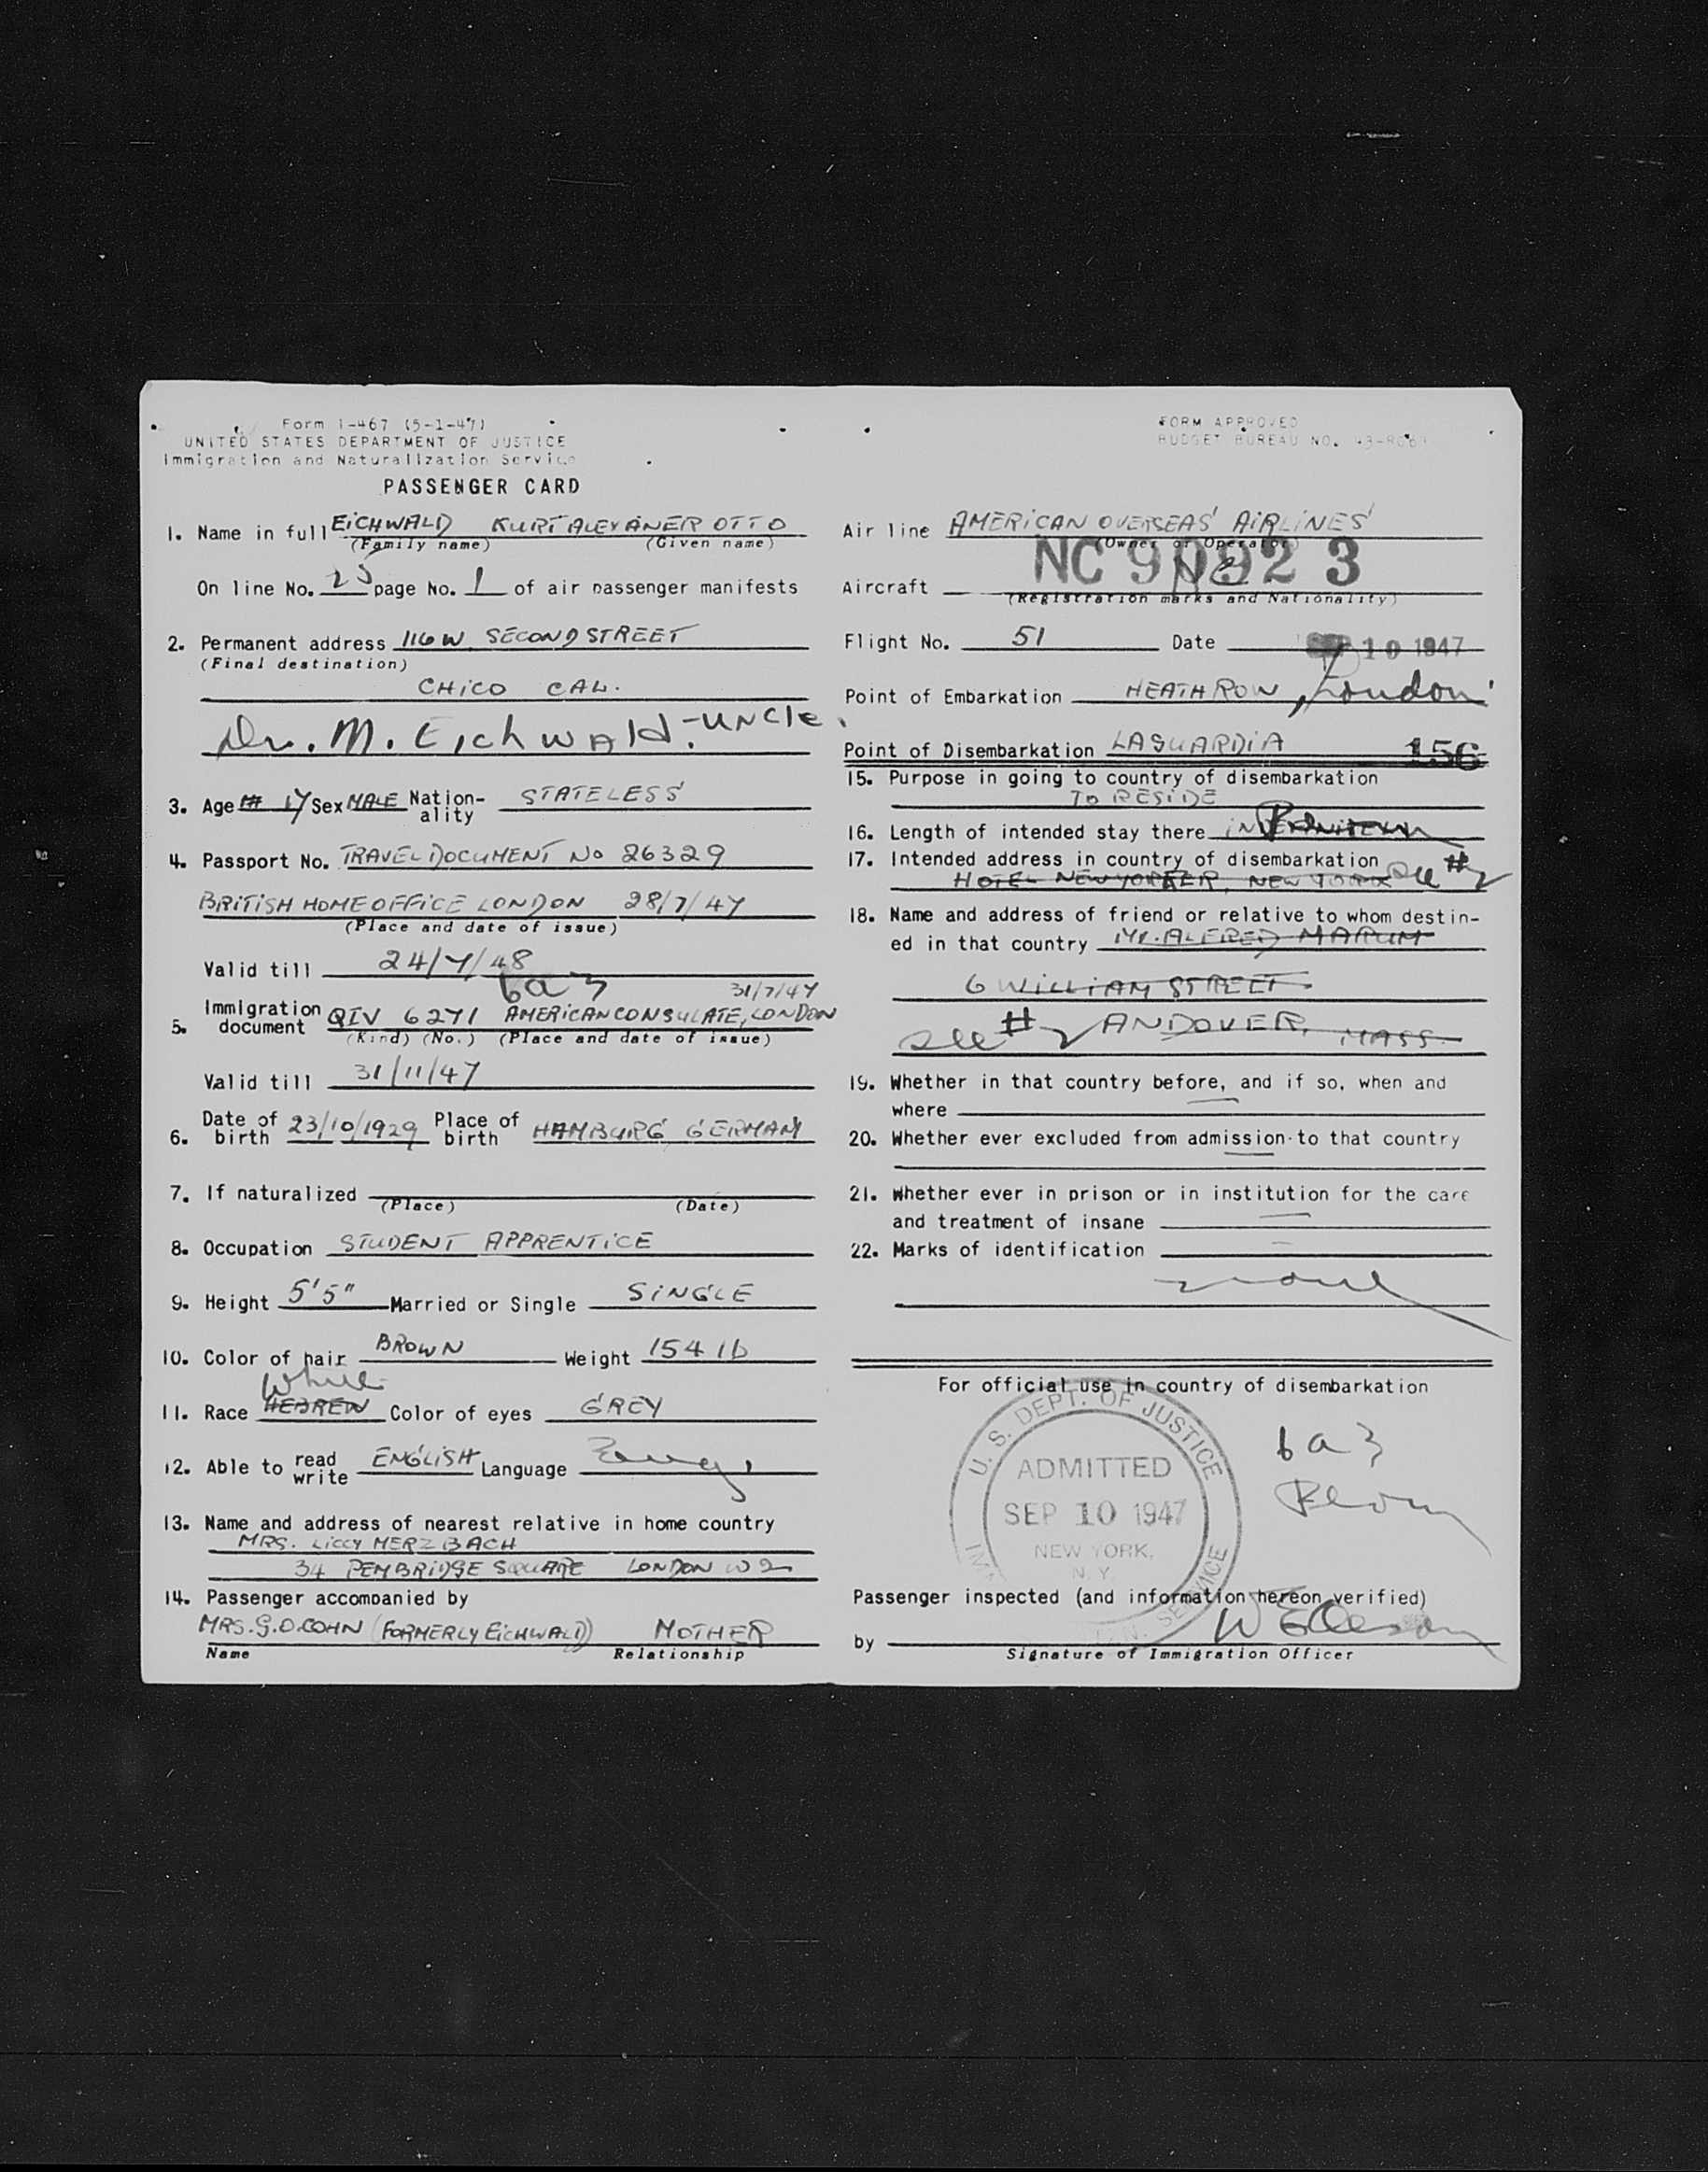 Form I-467 (5-1-47)
UNITED STATES DEPARTMENT OF JUSTICE
Immigration and Naturalization Service
PASSENGER CARD
FORM APPROVED
BUDGET BUREAU NO.
1. Name in full EICHWALD KURT ALEXANER OTTO
(Family name) (Given name)
On line No. 25 page No. 1 of air passenger manifests
2. Permanent address 116 W. SECOND STREET
(Final destination)
CHICO CAL.
Dr. M. Eichwald. - UNCle.
3. Age 17 Sex MALE Nation-ality STATELESS
4. Passport No. TRAVEL DOCUMENT No 26329
BRITISH HOME OFFICE LONDON 28/7/47
(Place and date of issue)
Valid till 24/7/48
6a3 31/7/47
5. Immigration document QIV 6271 AMERICAN CONSULATE, LONDON
(Kind) (No.) (Place and date of issue)
Valid till 31/11/47
6. Date of birth 23/10/1929 Place of birth HAMBURG GERMANY
7. If naturalized
(Place) (Date)
8. Occupation STUDENT APPRENTICE
9. Height 5'5" Married or Single SINGLE
10. Color of hair BROWN Weight 154 lb
White
11. Race HEBREW Color of eyes GREY
12. Able to read write ENGLISH Language Eng.
13. Name and address of nearest relative in home country
MRS. LICCY MERZBACH
34 PEMBRIDGE SQUARE LONDON W2
14. Passenger accompanied by
MRS. G.O. COHN (FORMERLY EICHWALD) MOTHER
Name Relationship
Air line AMERICAN OVERSEAS AIRLINES
(Owner or Operator)
Aircraft NC 90923
(Registration marks and Nationality)
Flight No. 51 Date SEP 10 1947
Point of Embarkation HEATHROW, London
Point of Disembarkation LAGUARDIA 156
15. Purpose in going to country of disembarkation
TO RESIDE
16. Length of intended stay there
17. Intended address in country of disembarkation
HOTEL NEW YORKER, NEW YORK see #2
18. Name and address of friend or relative to whom destin-
ed in that country Mr. ALFRED MARUM
6 WILLIAM STREET
see #2 ANDOVER, MASS.
19. Whether in that country before, and if so, when and
where
20. Whether ever excluded from admission to that country
21. Whether ever in prison or in institution for the care
and treatment of insane
22. Marks of identification
none
For official use in country of disembarkation
U. S. DEPT. OF JUSTICE
ADMITTED
SEP 10 1947
NEW YORK,
N. Y.
6a3
Passenger inspected (and information hereon verified)
by
Signature of Immigration Officer